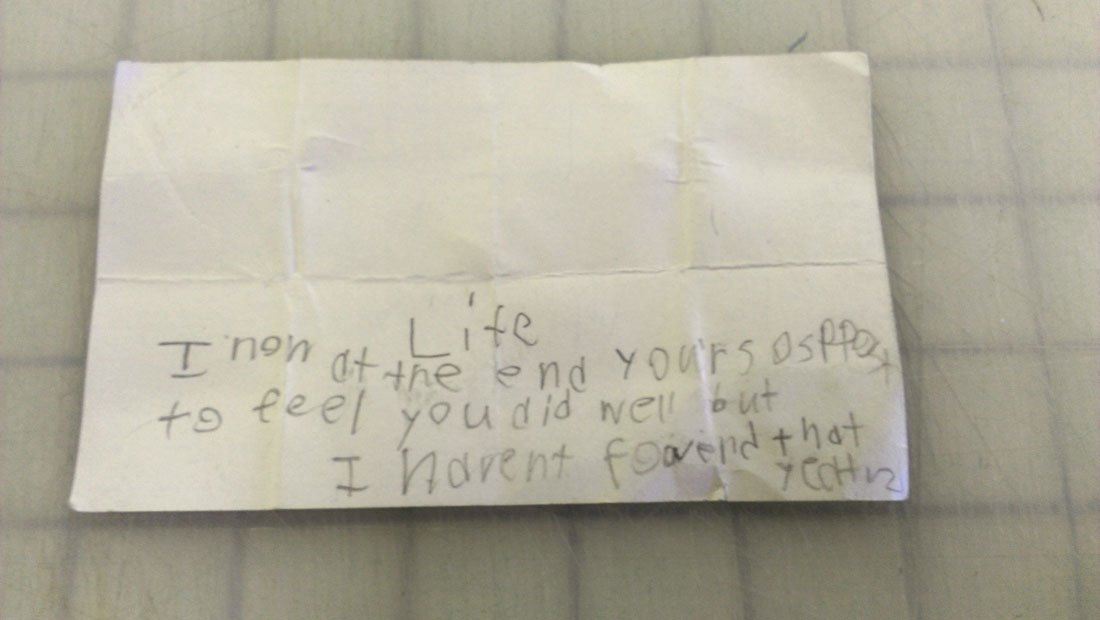 Life
I non at the end yours osppost
to feel you did well but
I Havent foavend that
yeat